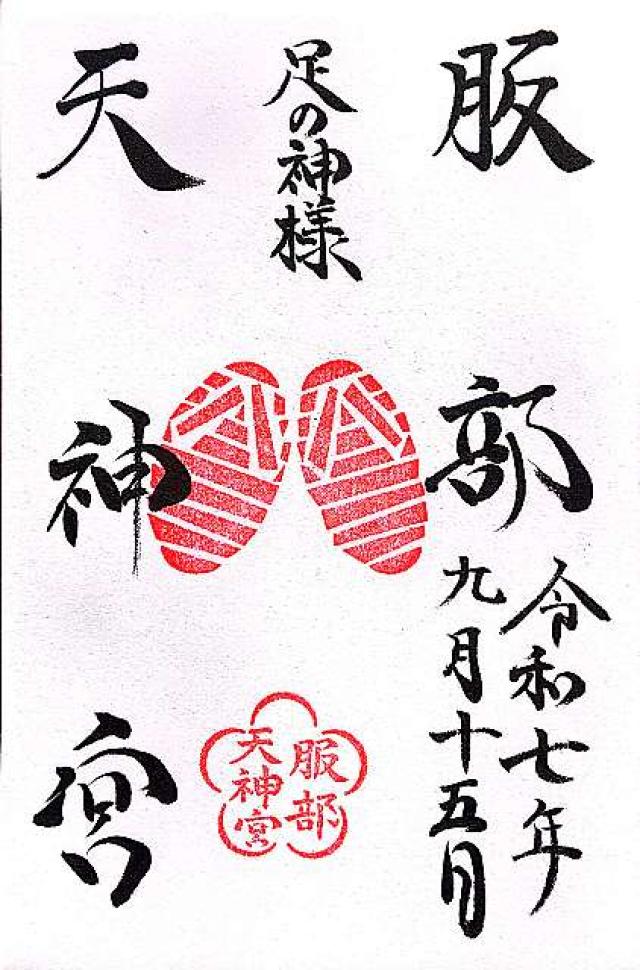 服部
令和七年
九月十五日
足の神様
天神宮
服部
天神宮